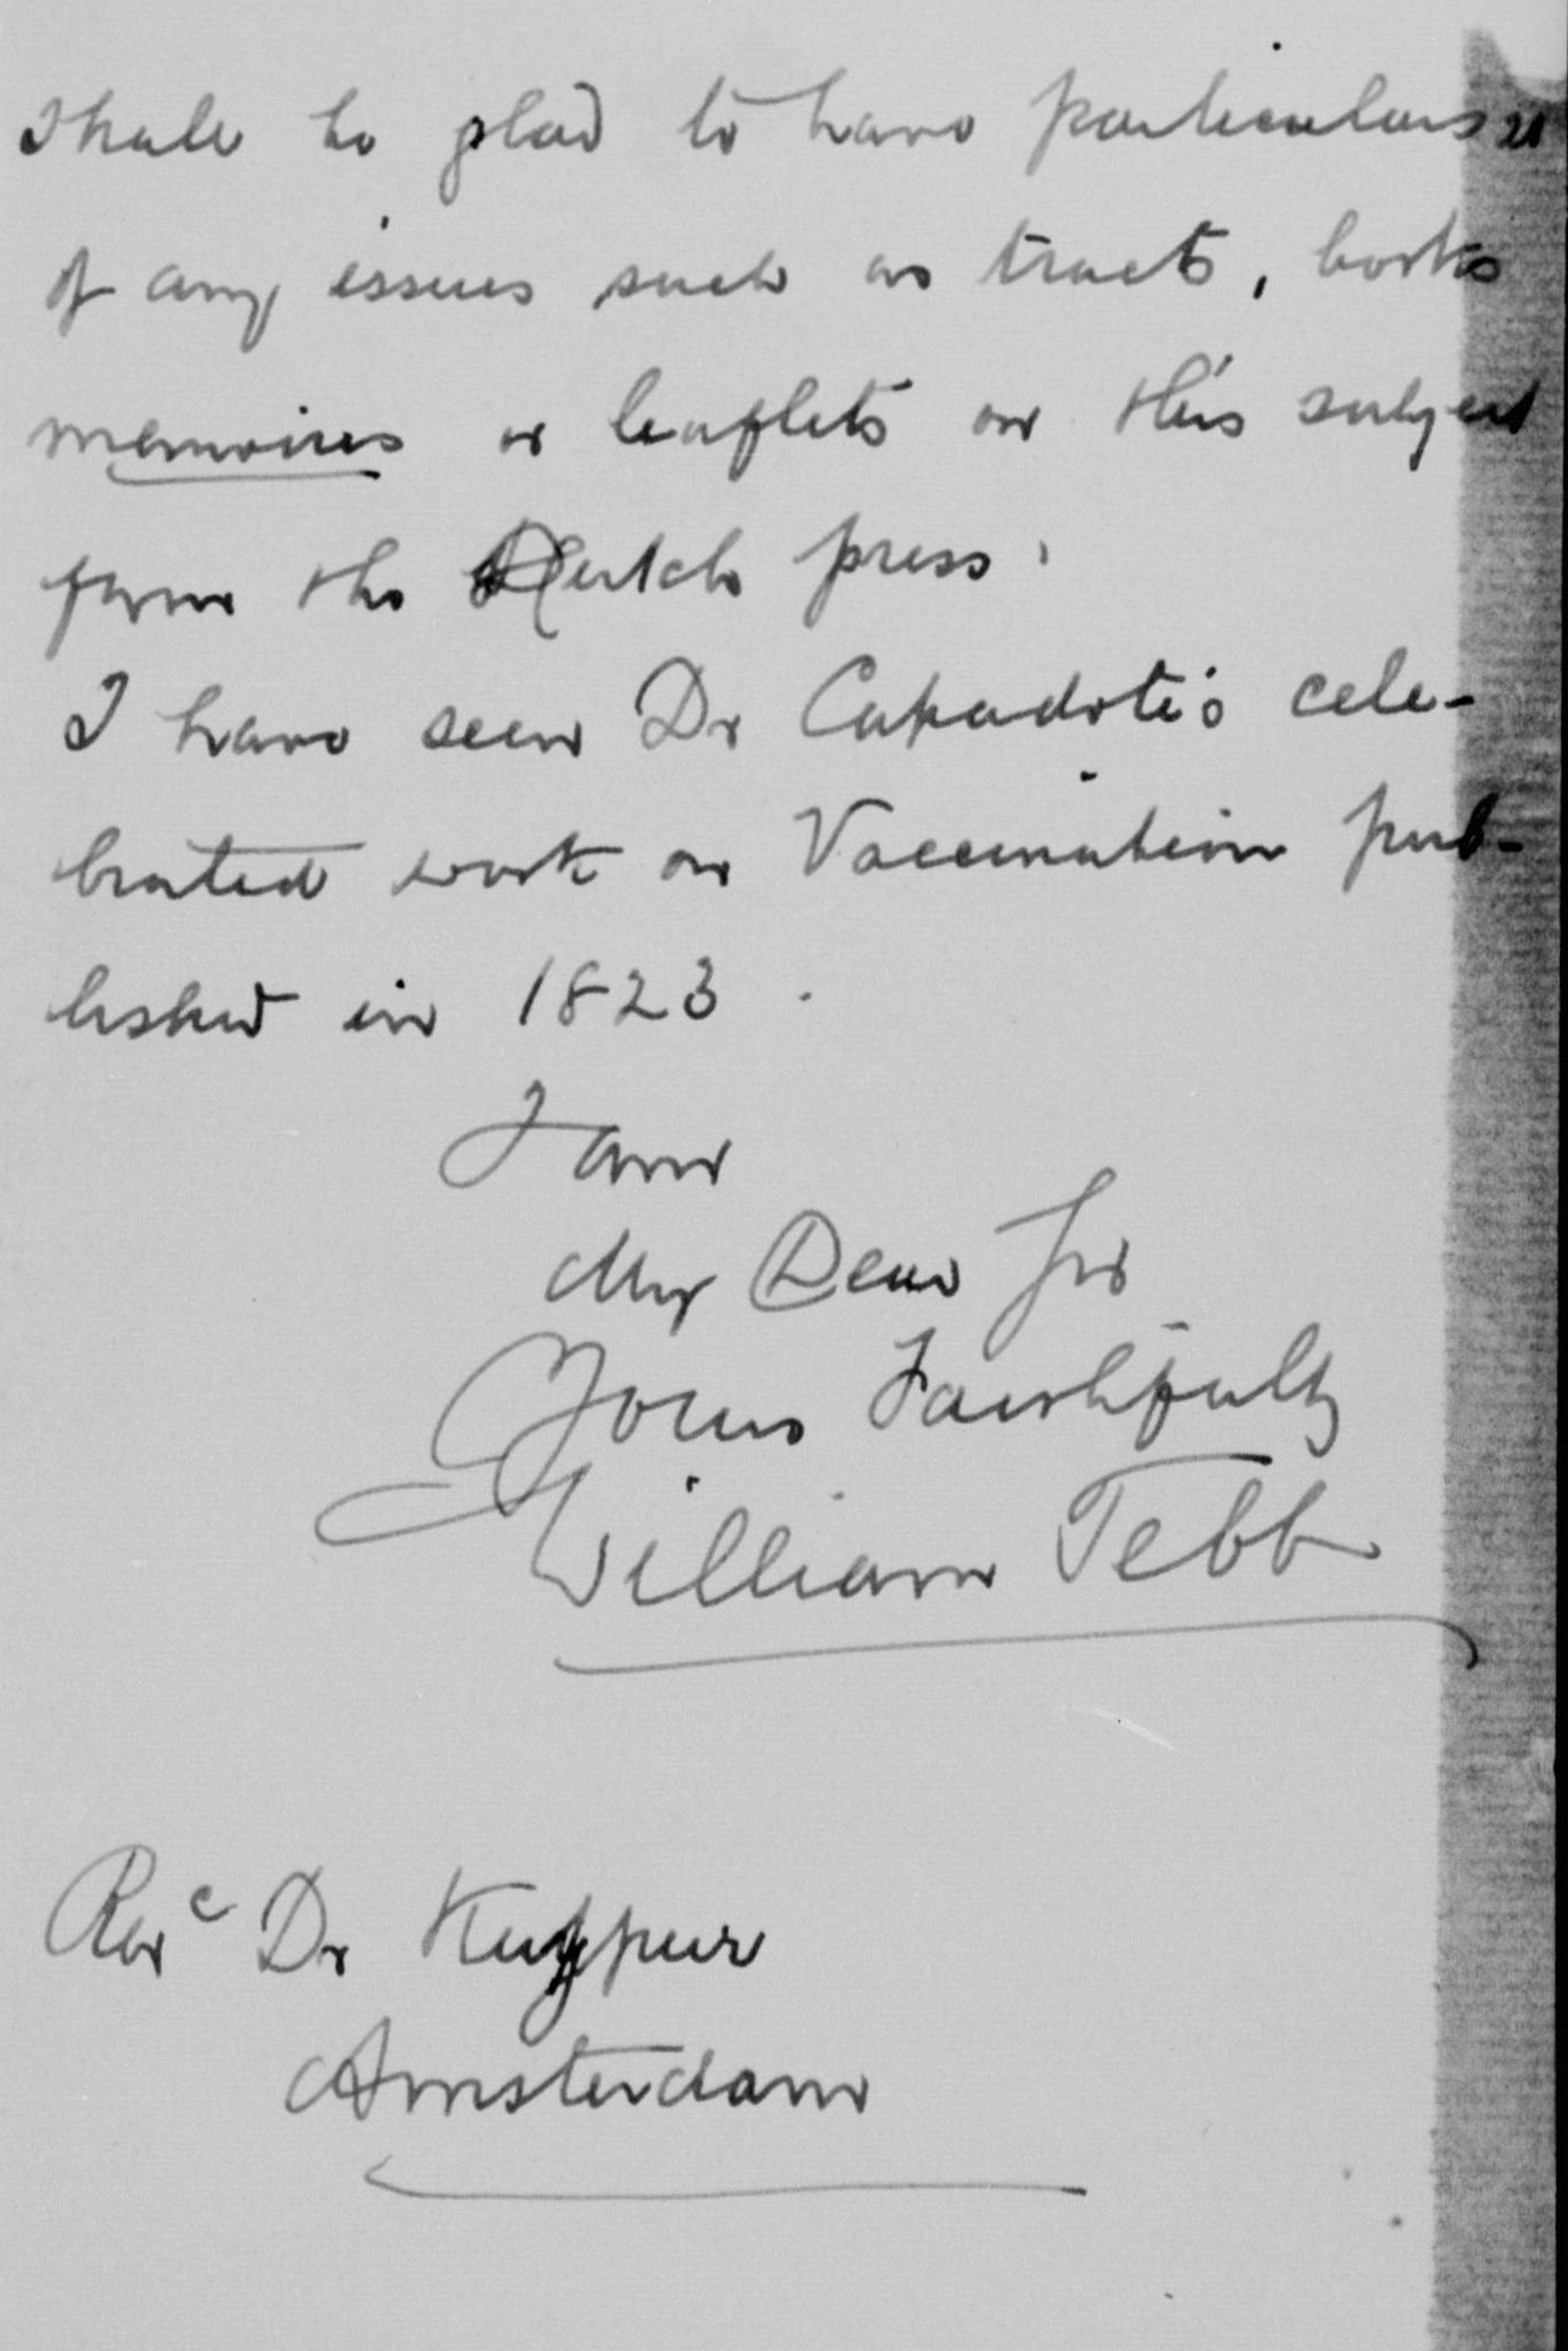 Shall be glad to have particulars
of any issues such as tracts, books
memoires or leaflets on this subject
from the Dutch press.
I have seen Dr Capadote's cele-
brated work on Vaccination pub-
lished in 1823.
I am
My Dear Sir
Yours Faithfully
William Tebb
Rev Dr Kuyper
Amsterdam